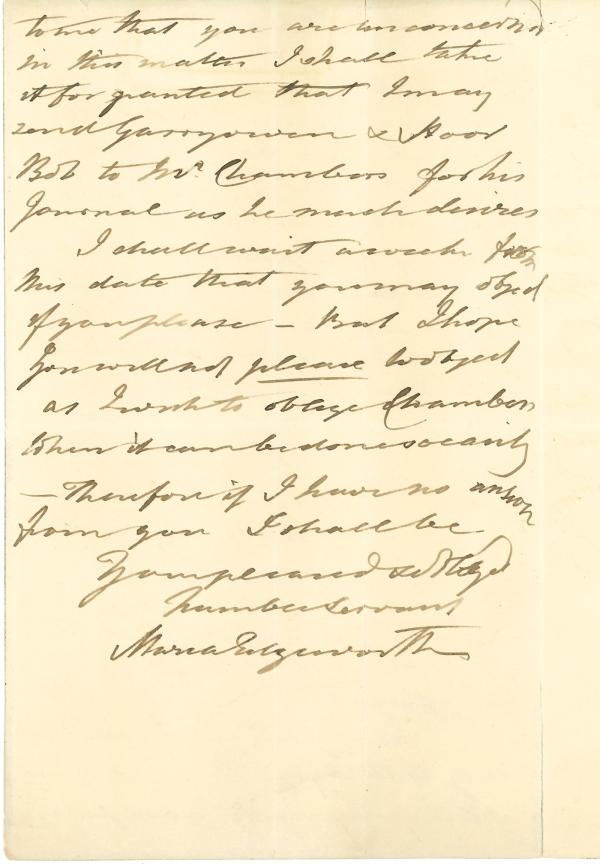 to me that you are unconcerned
in this matter I shall take
it for granted that I may
send Garryowen & Poor
Bob to Mr. Chambers for his
Journal as he much desires
I shall wait a week from
this date that you may object
if you please – But I hope
you will not please to object
as I wish to oblige Chambers
when it can be done so easily
– Therefore if I have no answer
from you I shall be
Your pleased & obliged
humble Servant
Maria Edgeworth